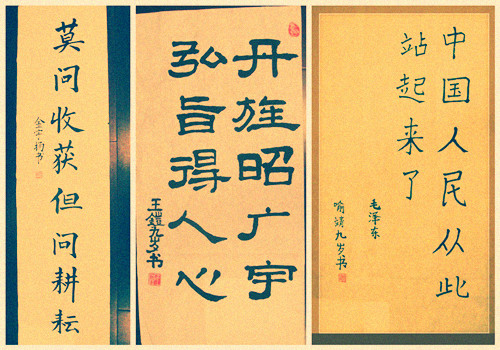 莫问收获但问耕耘
丹旌昭广宇
弘旨得人心
王鎧九岁书
中国人民从此
站起来了
毛泽东
喻婧九岁书